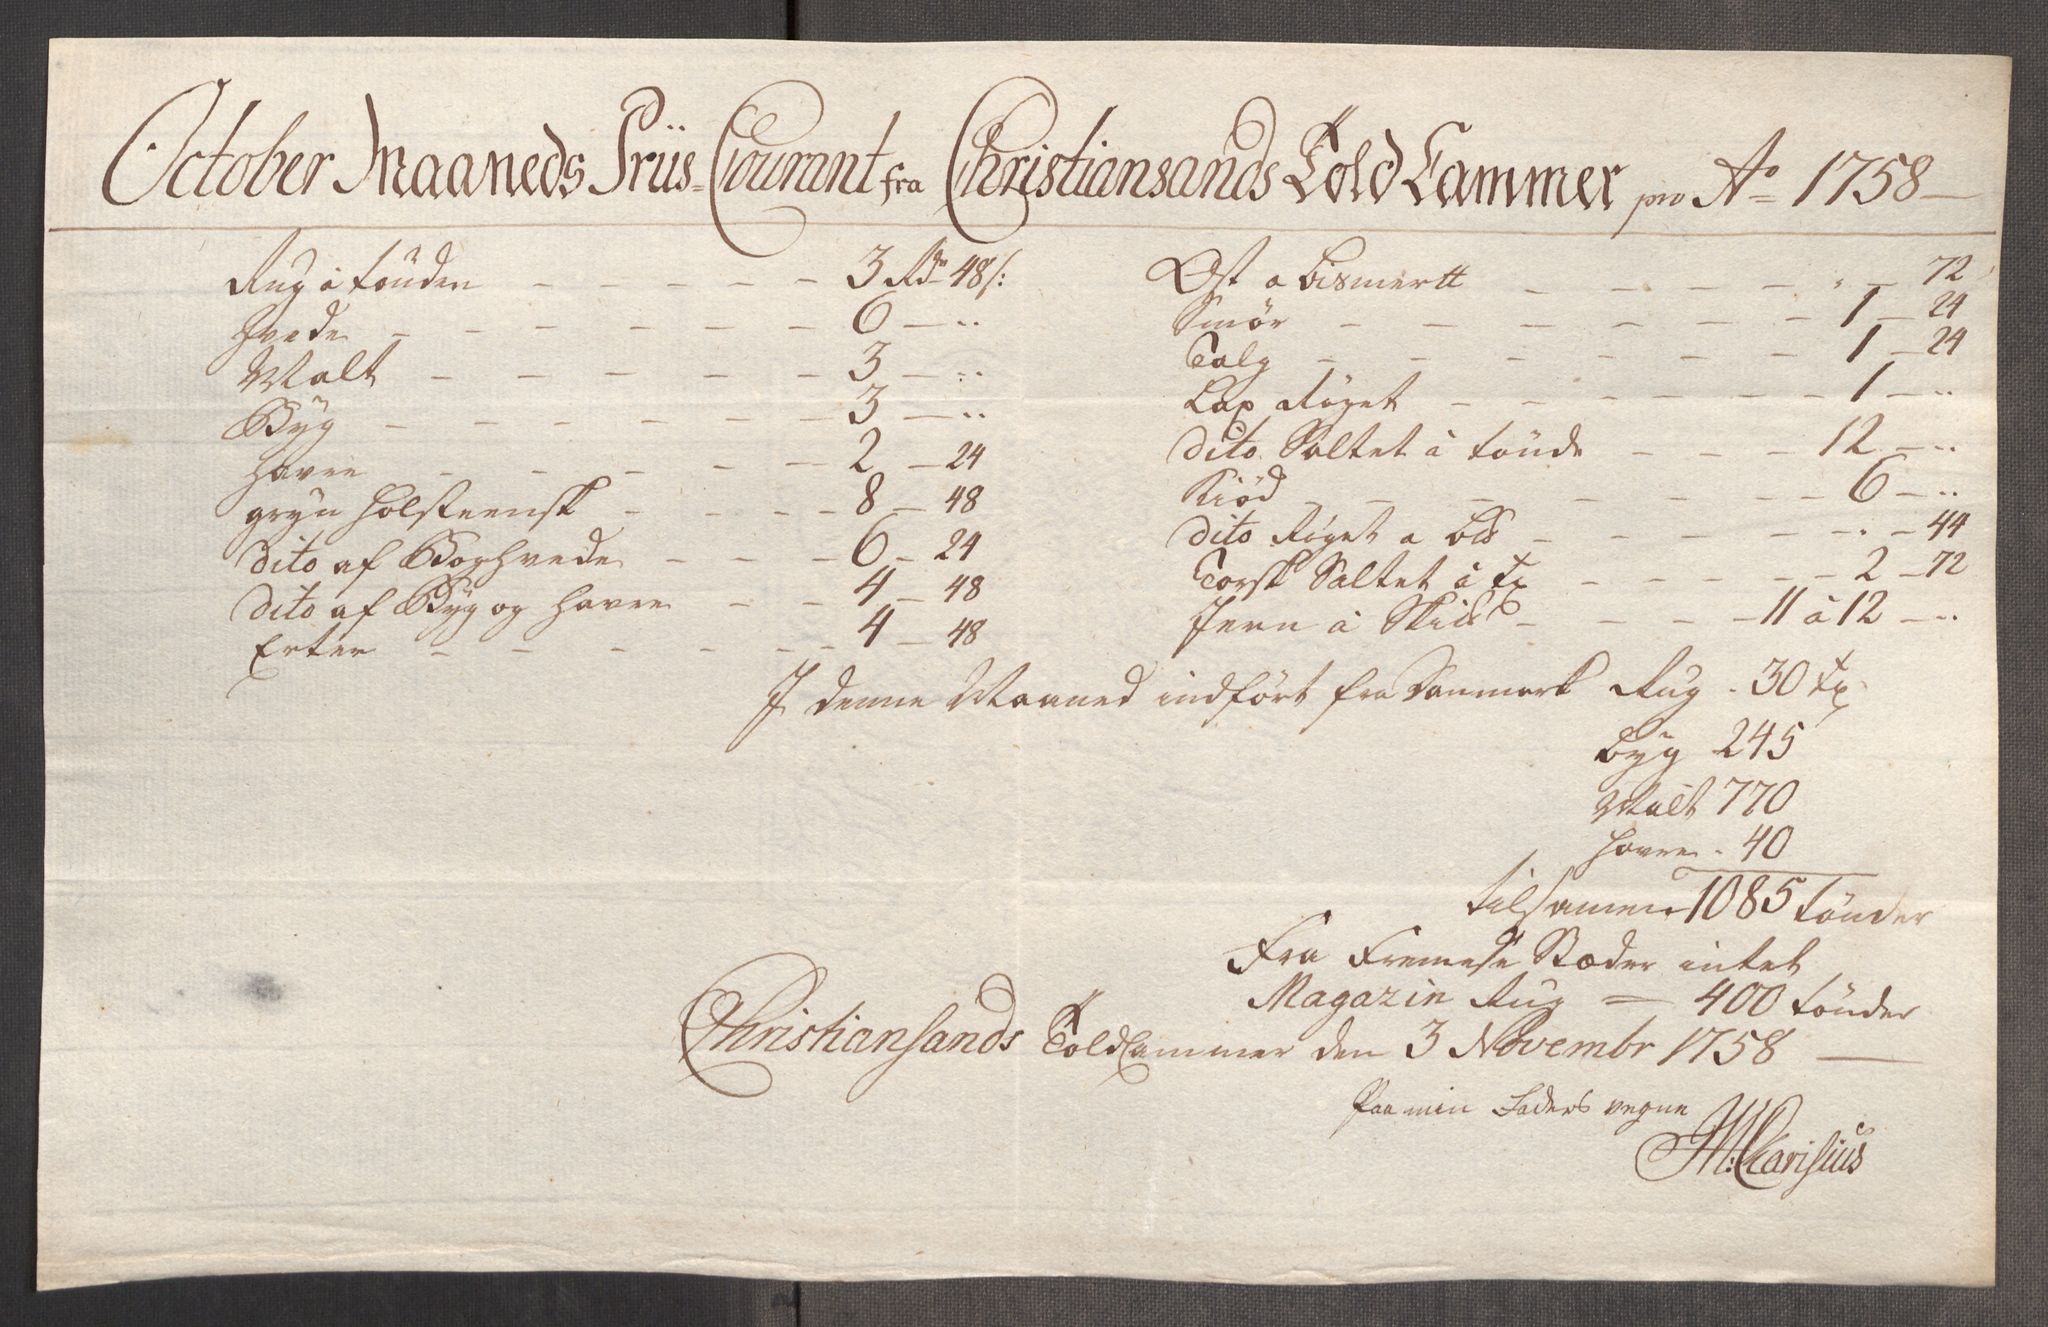 October Maaneds Priis=Courant fra Christiansands Told Cammer pro Ao 1758
Rug á tönden — 3 Rdr 48 s:
Hvede — 6 — ..
Malt — 3 — ..
Byg — 3 — ..
Havre — 2 — 24
gryn Holsteensk — 8 — 48
dito af Boghvede — 6 — 24
dito af Byg og Havre — 4 — 48
Erter — 4 — 48
Ost a bismertt — " — 72
Smör — 1 — 24
Talg — 1 — 24
Lax Röget — 1 — ..
dito Saltet á tönde — 12 — ..
Kiöd — 6 — ..
dito Röget a bis — " — 44
Torsk Saltet á tr — 2 — 72
Jern á Skid — 11 á 12 — ..
I denne Maaned indfört fra Danmark Rug . 30 tr
Byg 245
Malt 770
Havre . 40
tilsamen 1085 tönder
Fra Fremede Stæder intet
Magazin Rug — 400 tönder
Christiansands ToldCammer den 3 Novembr 1758
Paa min Faders vegne
M: Carisius